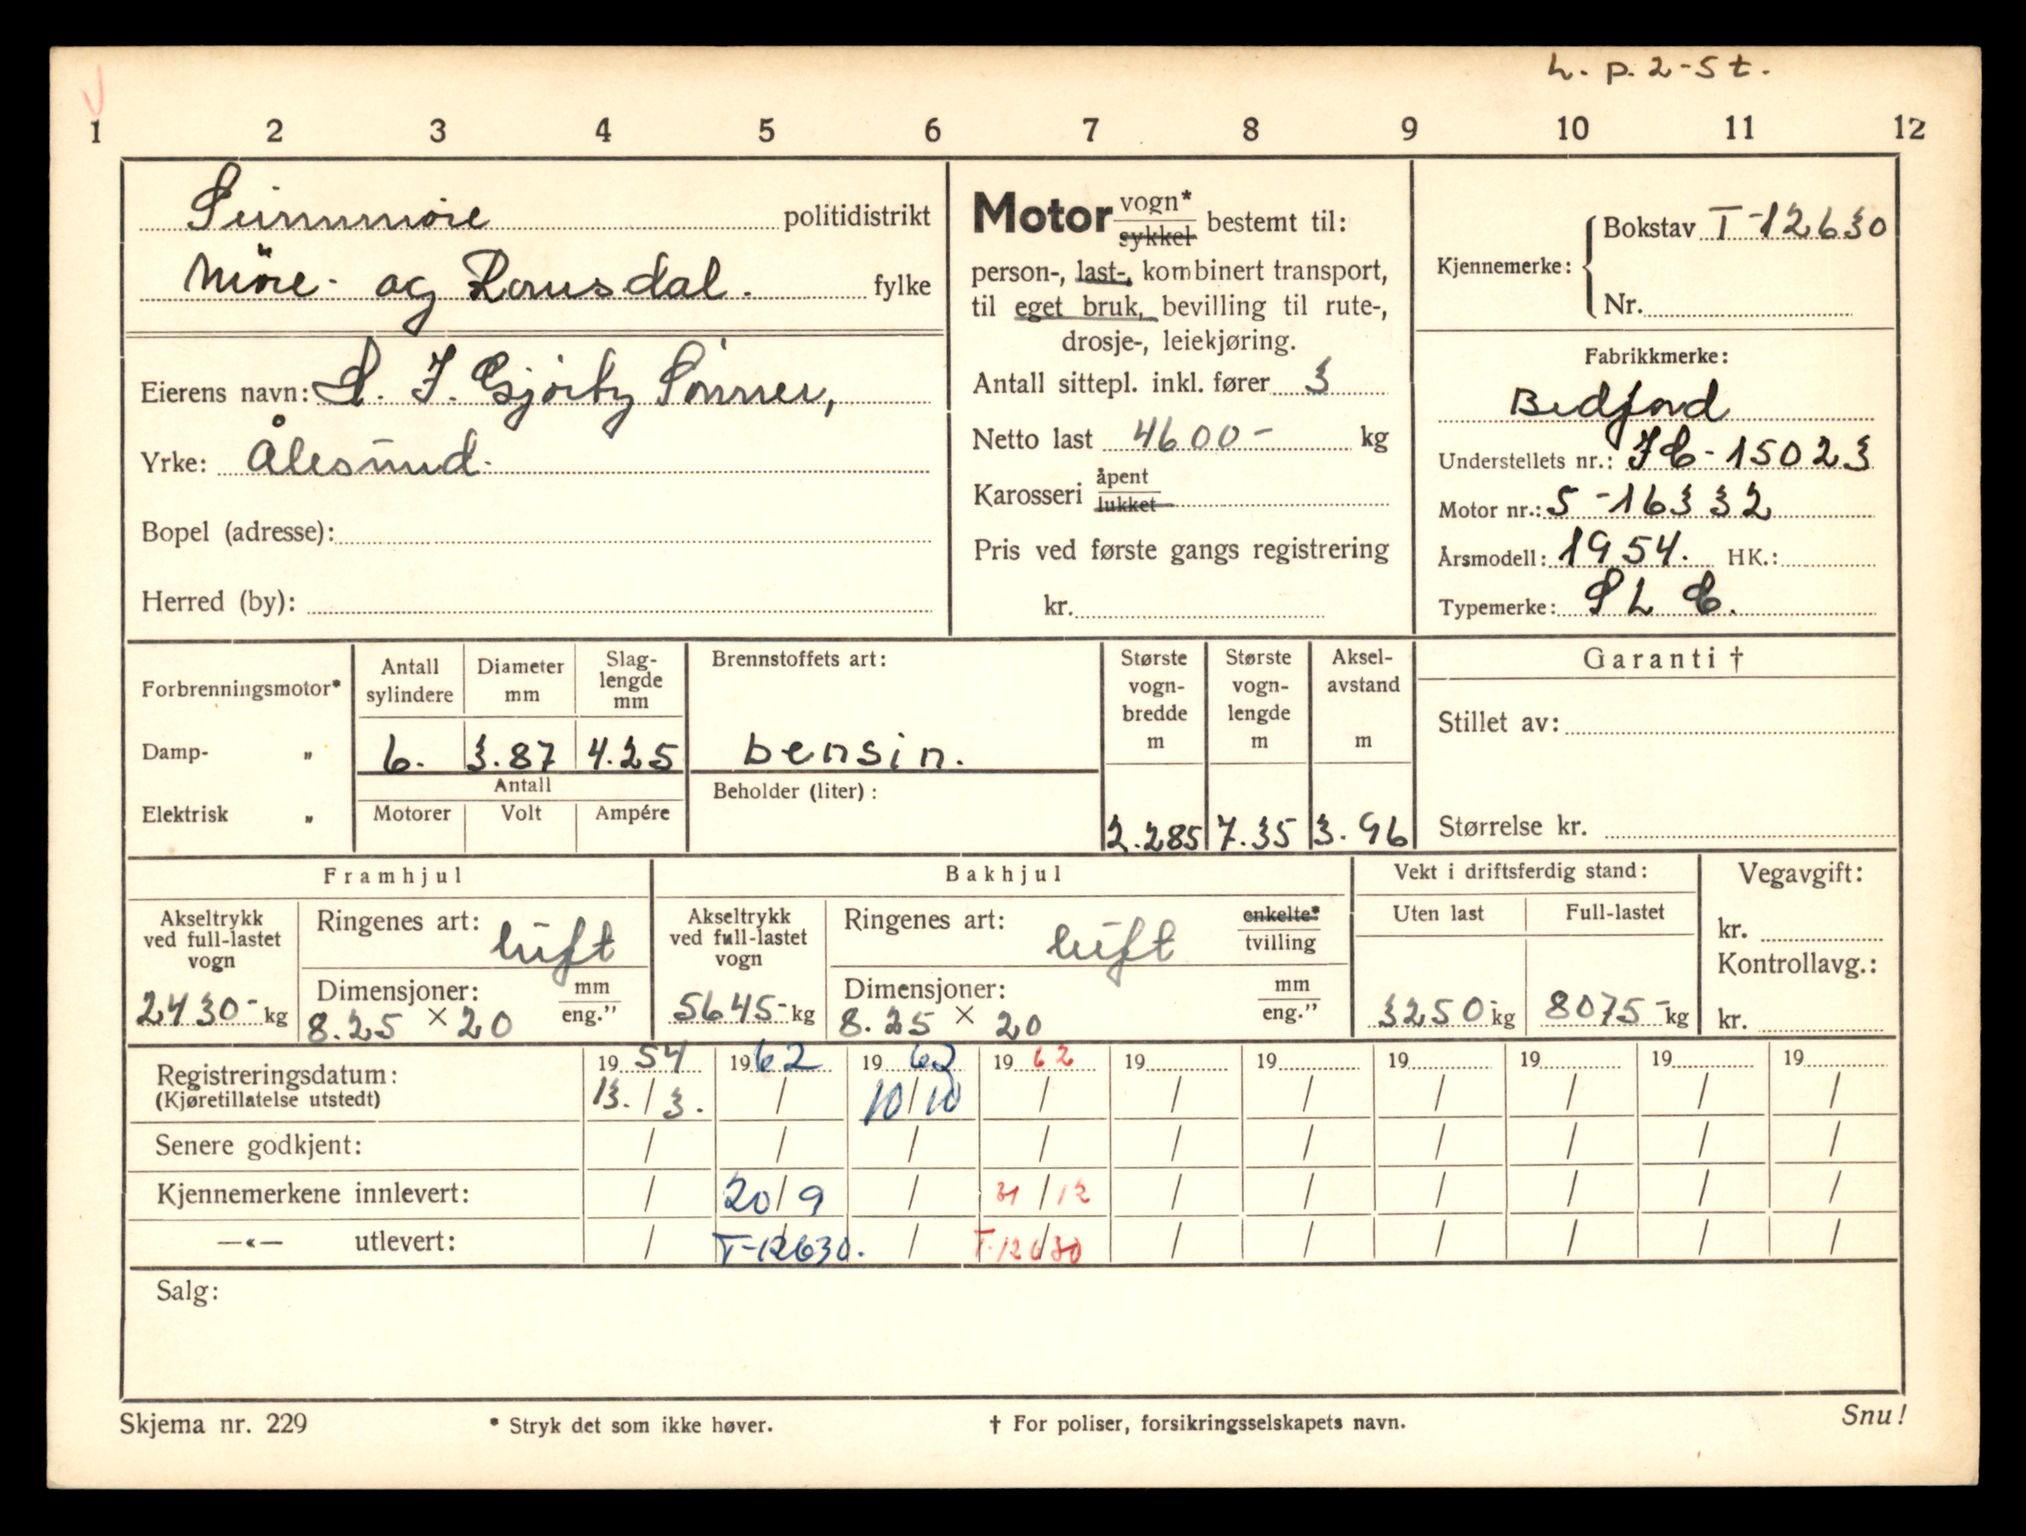 L. p. 2-5 t.
1 2 3 4 5 6 7 8 9 10 11 12
Sunnmøre politidistrikt
Møre- og Romsdal. fylke
Eierens navn: S. J. Gjørtz Sønner,
Yrke: Ålesund.
Bopel (adresse):
Herred (by):
Motor vogn* sykkel bestemt til:
person-, last-, kombinert transport,
til eget bruk, bevilling til rute-,
drosje-, leiekjøring.
Antall sittepl. inkl. fører 3
Netto last 4600- kg
Karosseri åpent lukket
Pris ved første gangs registrering
kr.
Kjennemerke: Bokstav T-12630
Nr.
Fabrikkmerke:
Bedford
Understellets nr.: JC-15023
Motor nr.: S-16332
Årsmodell: 1954. HK.:
Typemerke: SLC.
Forbrenningsmotor*
Damp- „
Elektrisk „
Antall sylindere 6.
Diameter mm 3.87
Slag-lengde mm 4.25
Antall
Motorer Volt Ampére
Brennstoffets art:
bensin.
Beholder (liter):
Største vogn-bredde m 2.285
Største vogn-lengde m 7.35
Aksel-avstand m 3.96
Garanti †
Stillet av:
Størrelse kr.
Framhjul
Akseltrykk ved full-lastet vogn
2430- kg
Ringenes art: luft
Dimensjoner: mm eng."
8.25 × 20
Bakhjul
Akseltrykk ved full-lastet vogn
5645- kg
Ringenes art: luft enkelte* tvilling
Dimensjoner: mm eng."
8.25 × 20
Vekt i driftsferdig stand:
Uten last Full-lastet
3250- kg 8075- kg
Vegavgift:
kr.
Kontrollavg.:
kr.
19 54 19 62 19 62 19 62 19 19 19 19 19 19
Registreringsdatum: 13. / 3. / 10/10 / / / / / / /
(Kjøretillatelse utstedt)
Senere godkjent: / / / / / / / / / /
Kjennemerkene innlevert: / 20/9 / 31/12 / / / / / /
—«— utlevert: / T-12630. / T-12630 / / / / / /
Salg:
Skjema nr. 229 * Stryk det som ikke høver. † For poliser, forsikringsselskapets navn. Snu!